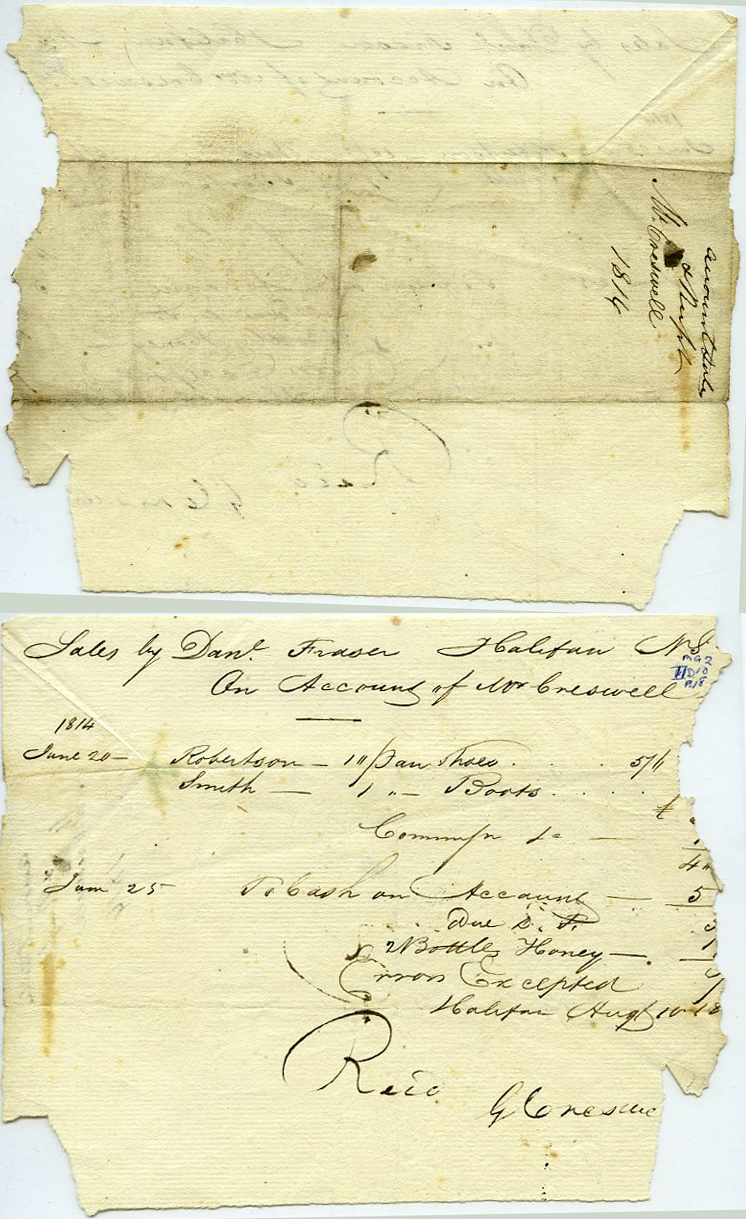 Account Sales
& Recpt
Mr. Creswell
1814
Sales by Danl. Fraser Halifax NS
On Account of Mr Creswell
MG2
D10
1814
June 20 — Robertson — 1 " Pair Shoes . . . . 5/
Smith — 1 " — Boots . . . .
£
Commissn
4
June 25 To Cash on Account — 5
Due D. F.
2 Bottles Honey —
Errors Excepted
Halifax Augt 10 18
Recd.
G Creswe